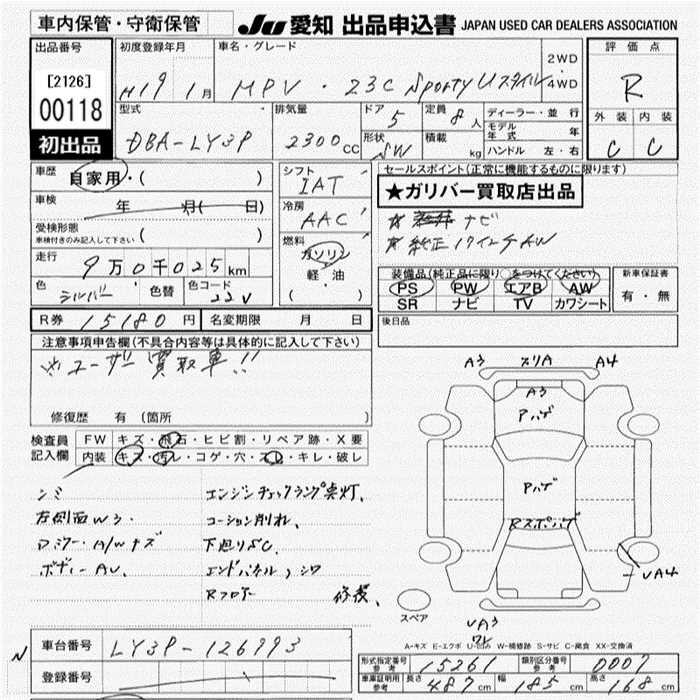 車内保管・守衛保管
JU 愛知 出品申込書 JAPAN USED CAR DEALERS ASSOCIATION
出品番号 初度登録年月 車名・グレード 評価点
[2126] H19 1月 MPV・23C Sporty Uスタイル 2WD 4WD R
00118 型式 排気量 ドア 定員 ディーラー・並行 外装 内装
初出品 DBA-LY3P 2300cc 5 8人 モデル年式 年 C C
形状 SW 積載 kg ハンドル 左・右
車歴 自家用・( ) シフト IAT セールスポイント(正常に機能するものに限ります)
★ガリバー買取店出品
車検 年 月( 日) 冷房 AAC ☆ ナビ
受検形態 車検付きのみ記入して下さい ( ) ☆純正17インチAW
走行 9万0千025km 燃料 ガソリン 軽・油 ( ・ )
装備品(純正品に限り○をつけてください) 新車保証書
PS PW エアB AW 有・無
SR ナビ TV カワシート
色 シルバー 色替 色コード 22V
R券 15180円 名変期限 月 日 後日品
注意事項申告欄(不具合内容等は具体的に記入して下さい)
※ユーザー買取車!!
修復歴 有 (箇所
検査員記入欄 FW キズ・飛石・ヒビ割・リペア跡・X要
内装 キズ・汚レ・コゲ・穴・スレ・キレ・破レ
A3 スリA A4
A3
Aハゲ
Aハゲ
Rスポハゲ
UA4
シミ エンジンチェックランプ点灯、
左側面W3 コーション削れ、
Dミラー・A/Wキズ 下廻りSC、
ボディーAU、 エンドパネル、シワ
Rフロアー 修復、
スペア
UA3
ワレ
A-キズ E-エクボ U-凹み W-補修跡 S-サビ C-腐食 XX-交換済
N 車台番号 LY3P-126993
登録番号
形式指定番号 参考 15261 類別区分番号 参考 0007
車庫証明用 参考 長さ 487cm 幅 185cm 高さ 168cm